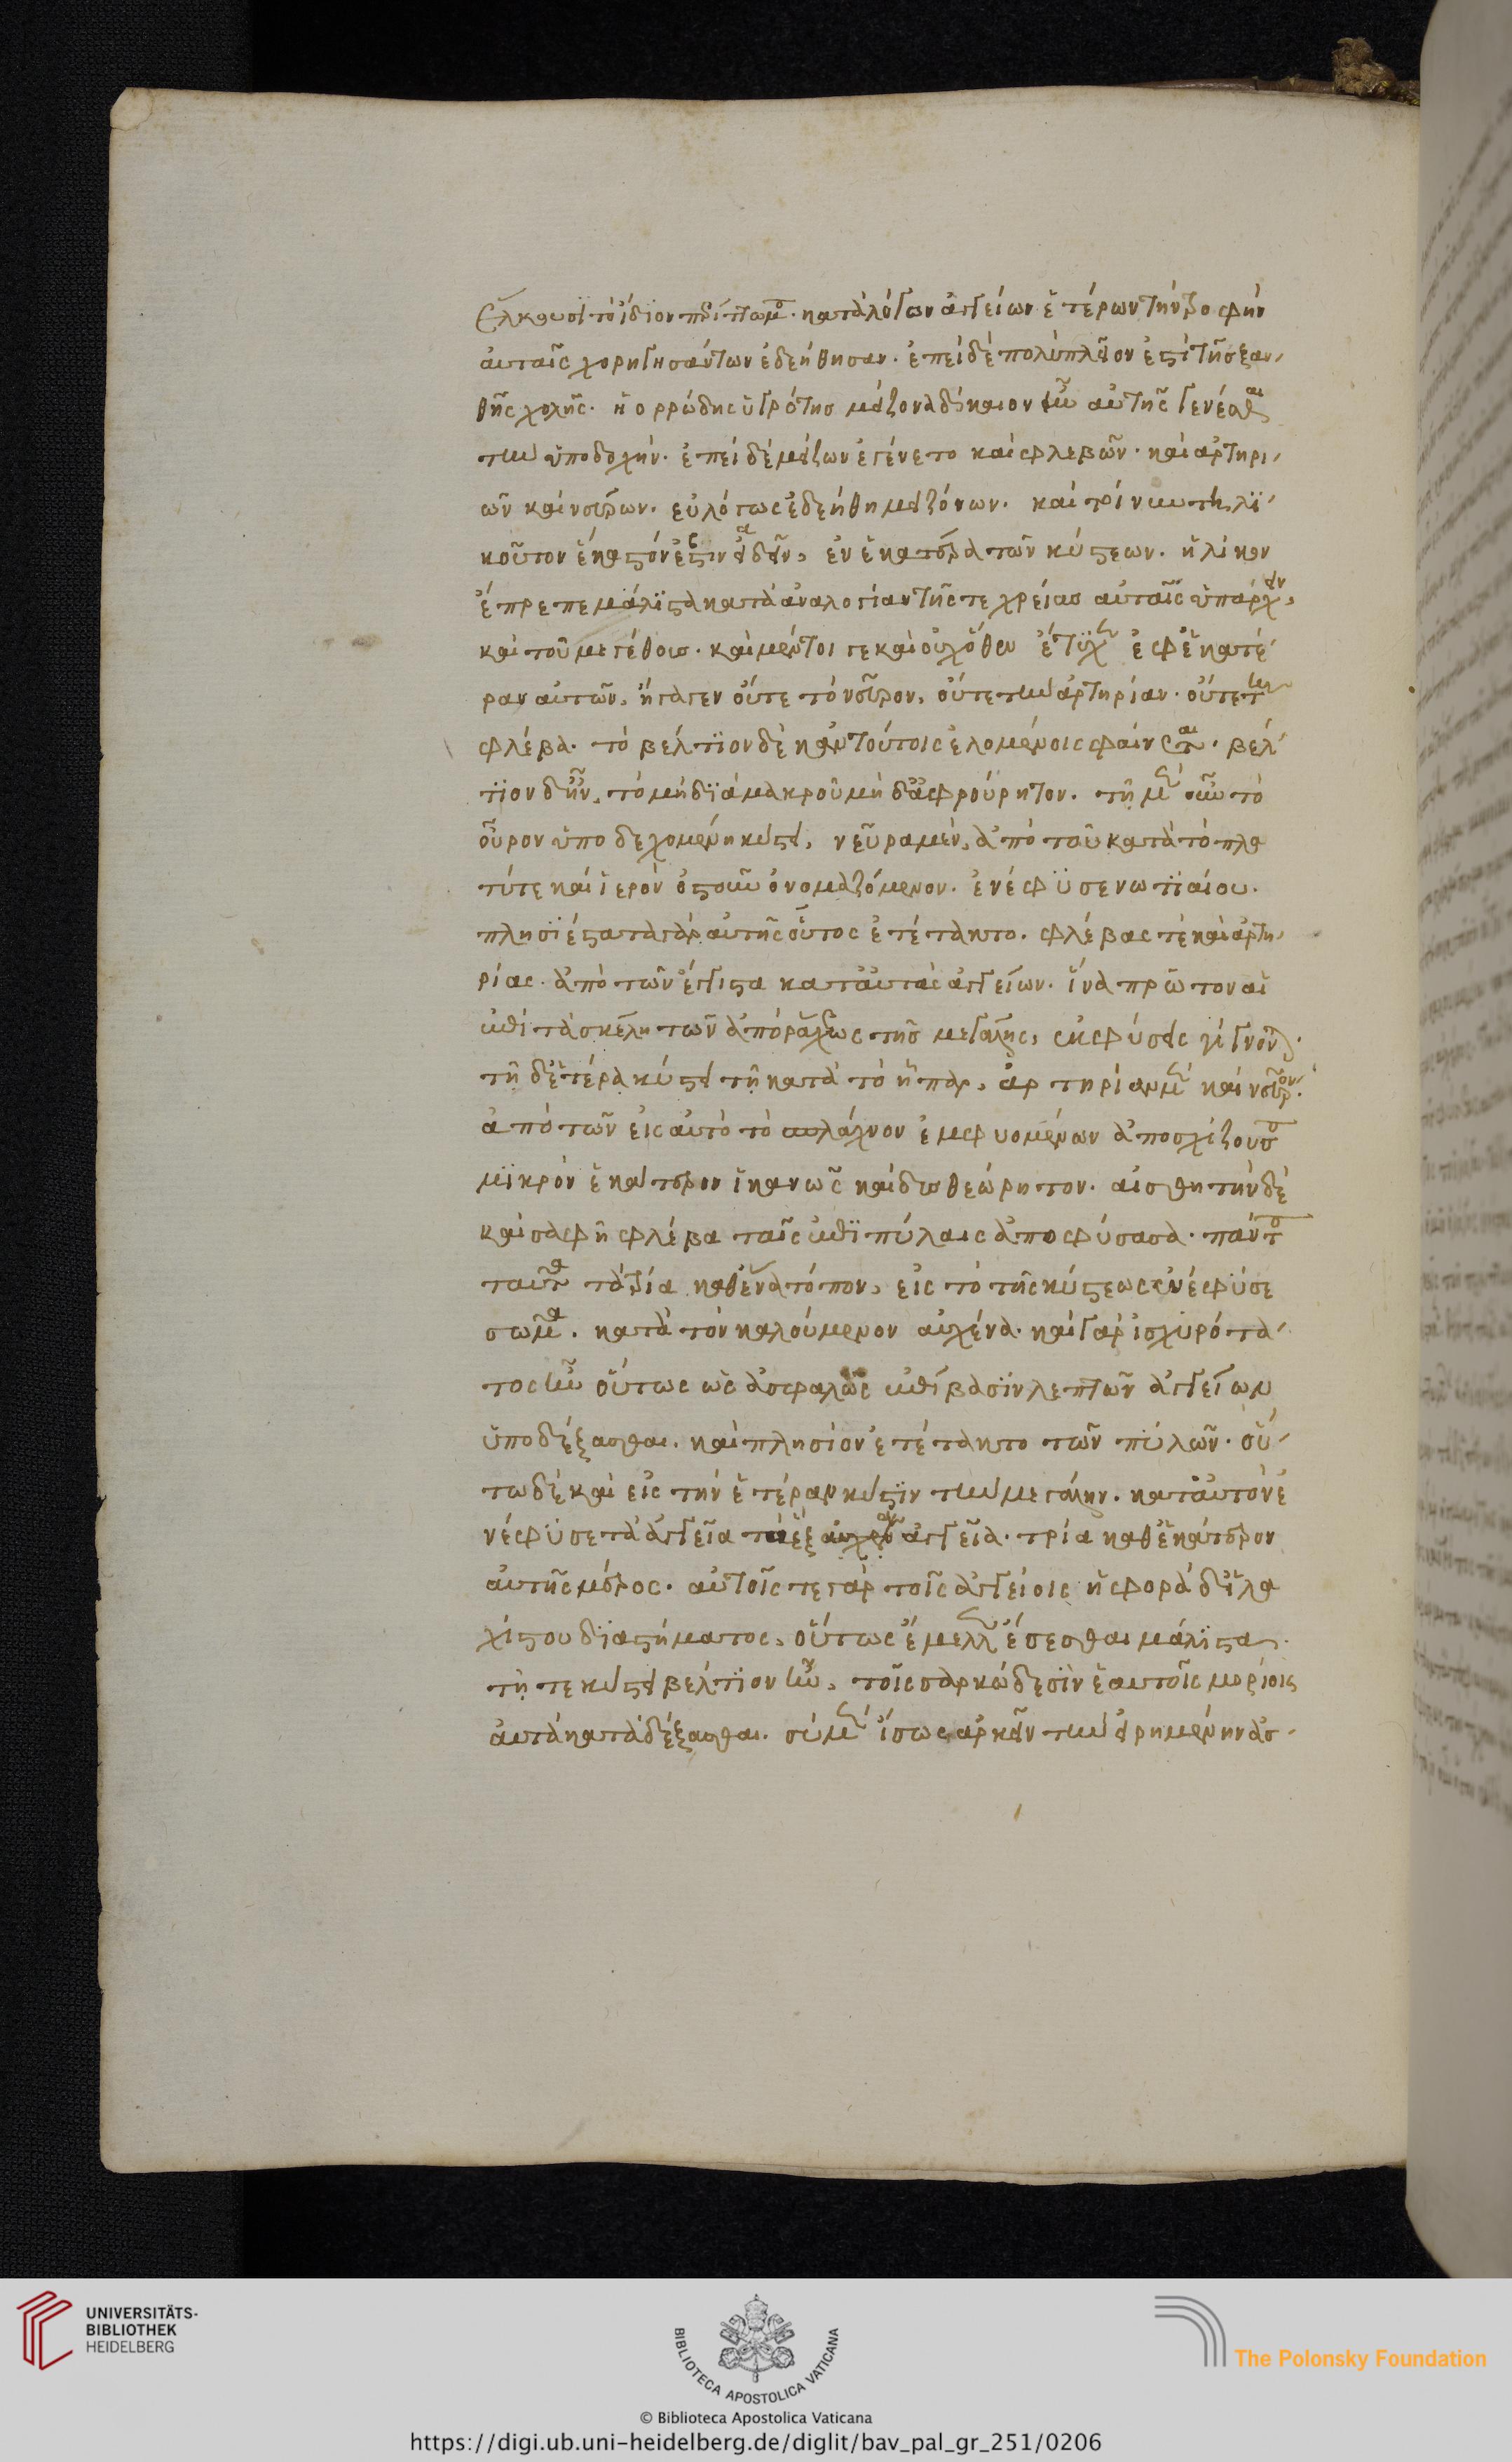 ἕλκουσϊ τὸ ἴδϊον περίττωμα. κατὰ λόγον ἀγγείων ἑτέρων τὴν τροφὴν
αὐταῖς χορηγησάντων ἐδεήθησαν. ἐπεὶ δὲ πολὺ πλεῖον ἐστὶ τῆς ξαν
θῆς χολῆς. ἡ ορρώδης ὑγρότης μείζονα δίκαιον ἦν αὐτῆς γενέσθαι
τὴν ὑποδοχήν. ἐπεὶ δὲ μείζων ἐγένετο καὶ φλεβῶν. καὶ αρτηρι
ῶν καὶ νεύρων. εὐλόγως ἐδεήθη μειζόνων. καὶ τοίνυν τηλϊ
κοῦτον ἕκαστόν ἐστιν ἰδεῖν, ἐν ἑκατέρα τῶν κύστεων. ἡλίκον
ἔπρεπε μάλϊστα κατὰ αναλογίαν τῆς τε χρείας αὐταῖς ὑπάρχειν,
καὶ τοῦ μεγέθους. καὶ μέντοι γε καὶ οὐχ ὅθεν ἔτυχεν ἐφ' ἑκατέ
ραν αὐτῶν, ἤγαγεν οὔτε τὸ νεῦρον, οὔτε τὴν ἀρτηρίαν. οὔτε τὴν
φλέβα. τὸ βέλτϊον δὲ κἀν τούτοις ἑλομένοις φαίνεται. βέλ
τϊον δ' ἦν, τὸ μὴ δϊὰ μακροῦ μὴ δ' ἀφρούρητον. τῆ μὲν οὖν τὸ
οὖρον ὑποδεχομένη κύστει, νεῦρα μὲν, ἀπὸ τοῦ κατὰ τὸ πλα
τύ τε καὶ ἱερὸν ὀστοῦν ὀνομαζόμενον. ἐνέφϋσε νωτϊαίου.
πλησϊέστατα γὰρ αὐτῆς οὗτος ἐτέτακτο. φλέβας τὲ καὶ ἀρτη
ρίας. ἀπὸ τῶν ἔγγιστα κατ' ἀυτὰς ἀγγείων. ἵνα πρῶτον αἱ
ἐπὶ τὰ σκέλη τῶν ἀπὸ ράχεως τῆς μεγάλης, ἐκφύσεις γίγνονται.
τῆ δ' ἑτέρα κύστει τῆ κατὰ τὸ ἧπαρ, ἀρτηρίαν μὲν καὶ νεῦρον.
ἀπὸ τῶν εἰς αὐτὸ τὸ σπλάγχνον ἐμφυομένων ἀποσχίζουσα
μϊκρὸν ἑκάτερον ἱκανῶς καὶ δυσθεώρητον. αἰσθητὴν δὲ
καὶ σαφῆ φλέβα ταῖς ἐπϊ πύλαις ἀποφύσασα. πάντα
ταῦτα τὰ τρία καθ' ἕνα τόπον, εἰς τὸ τῆς κύστεως ἐνέφϋσε
σῶμα. κατὰ τὸν καλούμενον αὐχένα. καὶ γὰρ ἰσχυρότα
τος ἦν οὕτως ὡς ἀσφαλῶς ἐπίβασϊν λεπτῶν ἀγγείων
ὑποδέξασθαι. καὶ πλησίον ἐτέτακτο τῶν πϋλῶν. οὕ
τω δὲ καὶ εἰς τὴν ἑτέραν κύστϊν τὴν μεγάλην. κατ' ἀυτὸν ἐ
νέφϋσε τὰ ἀγγεῖα τὰ ἓξ ἀγγεῖα. τρία καθ' ἑκάτερον
αὐτῆς μέρος. αὐτοῖς τε γὰρ τοῖς ἀγγείοις ἡ φορὰ δι' ἐλα
χίστου δϊαστήματος, οὕτως ἔμελλεν ἔσεσθαι μάλϊστα.
τῆ τε κύστει βέλτϊον ἦν, τοῖς σαρκώδεσϊν ἑαυτοῖς μορίοις
ἀυτὰ καταδέξασθαι. σὺ μὲν ἴσως ἀρκεῖν τὴν εἰρημένην ἀσ
UNIVERSITÄTS-
BIBLIOTHEK
HEIDELBERG
BIBLIOTECA APOSTOLICA VATICANA
The Polonsky Foundation
© Biblioteca Apostolica Vaticana
https://digi.ub.uni-heidelberg.de/diglit/bav_pal_gr_251/0206